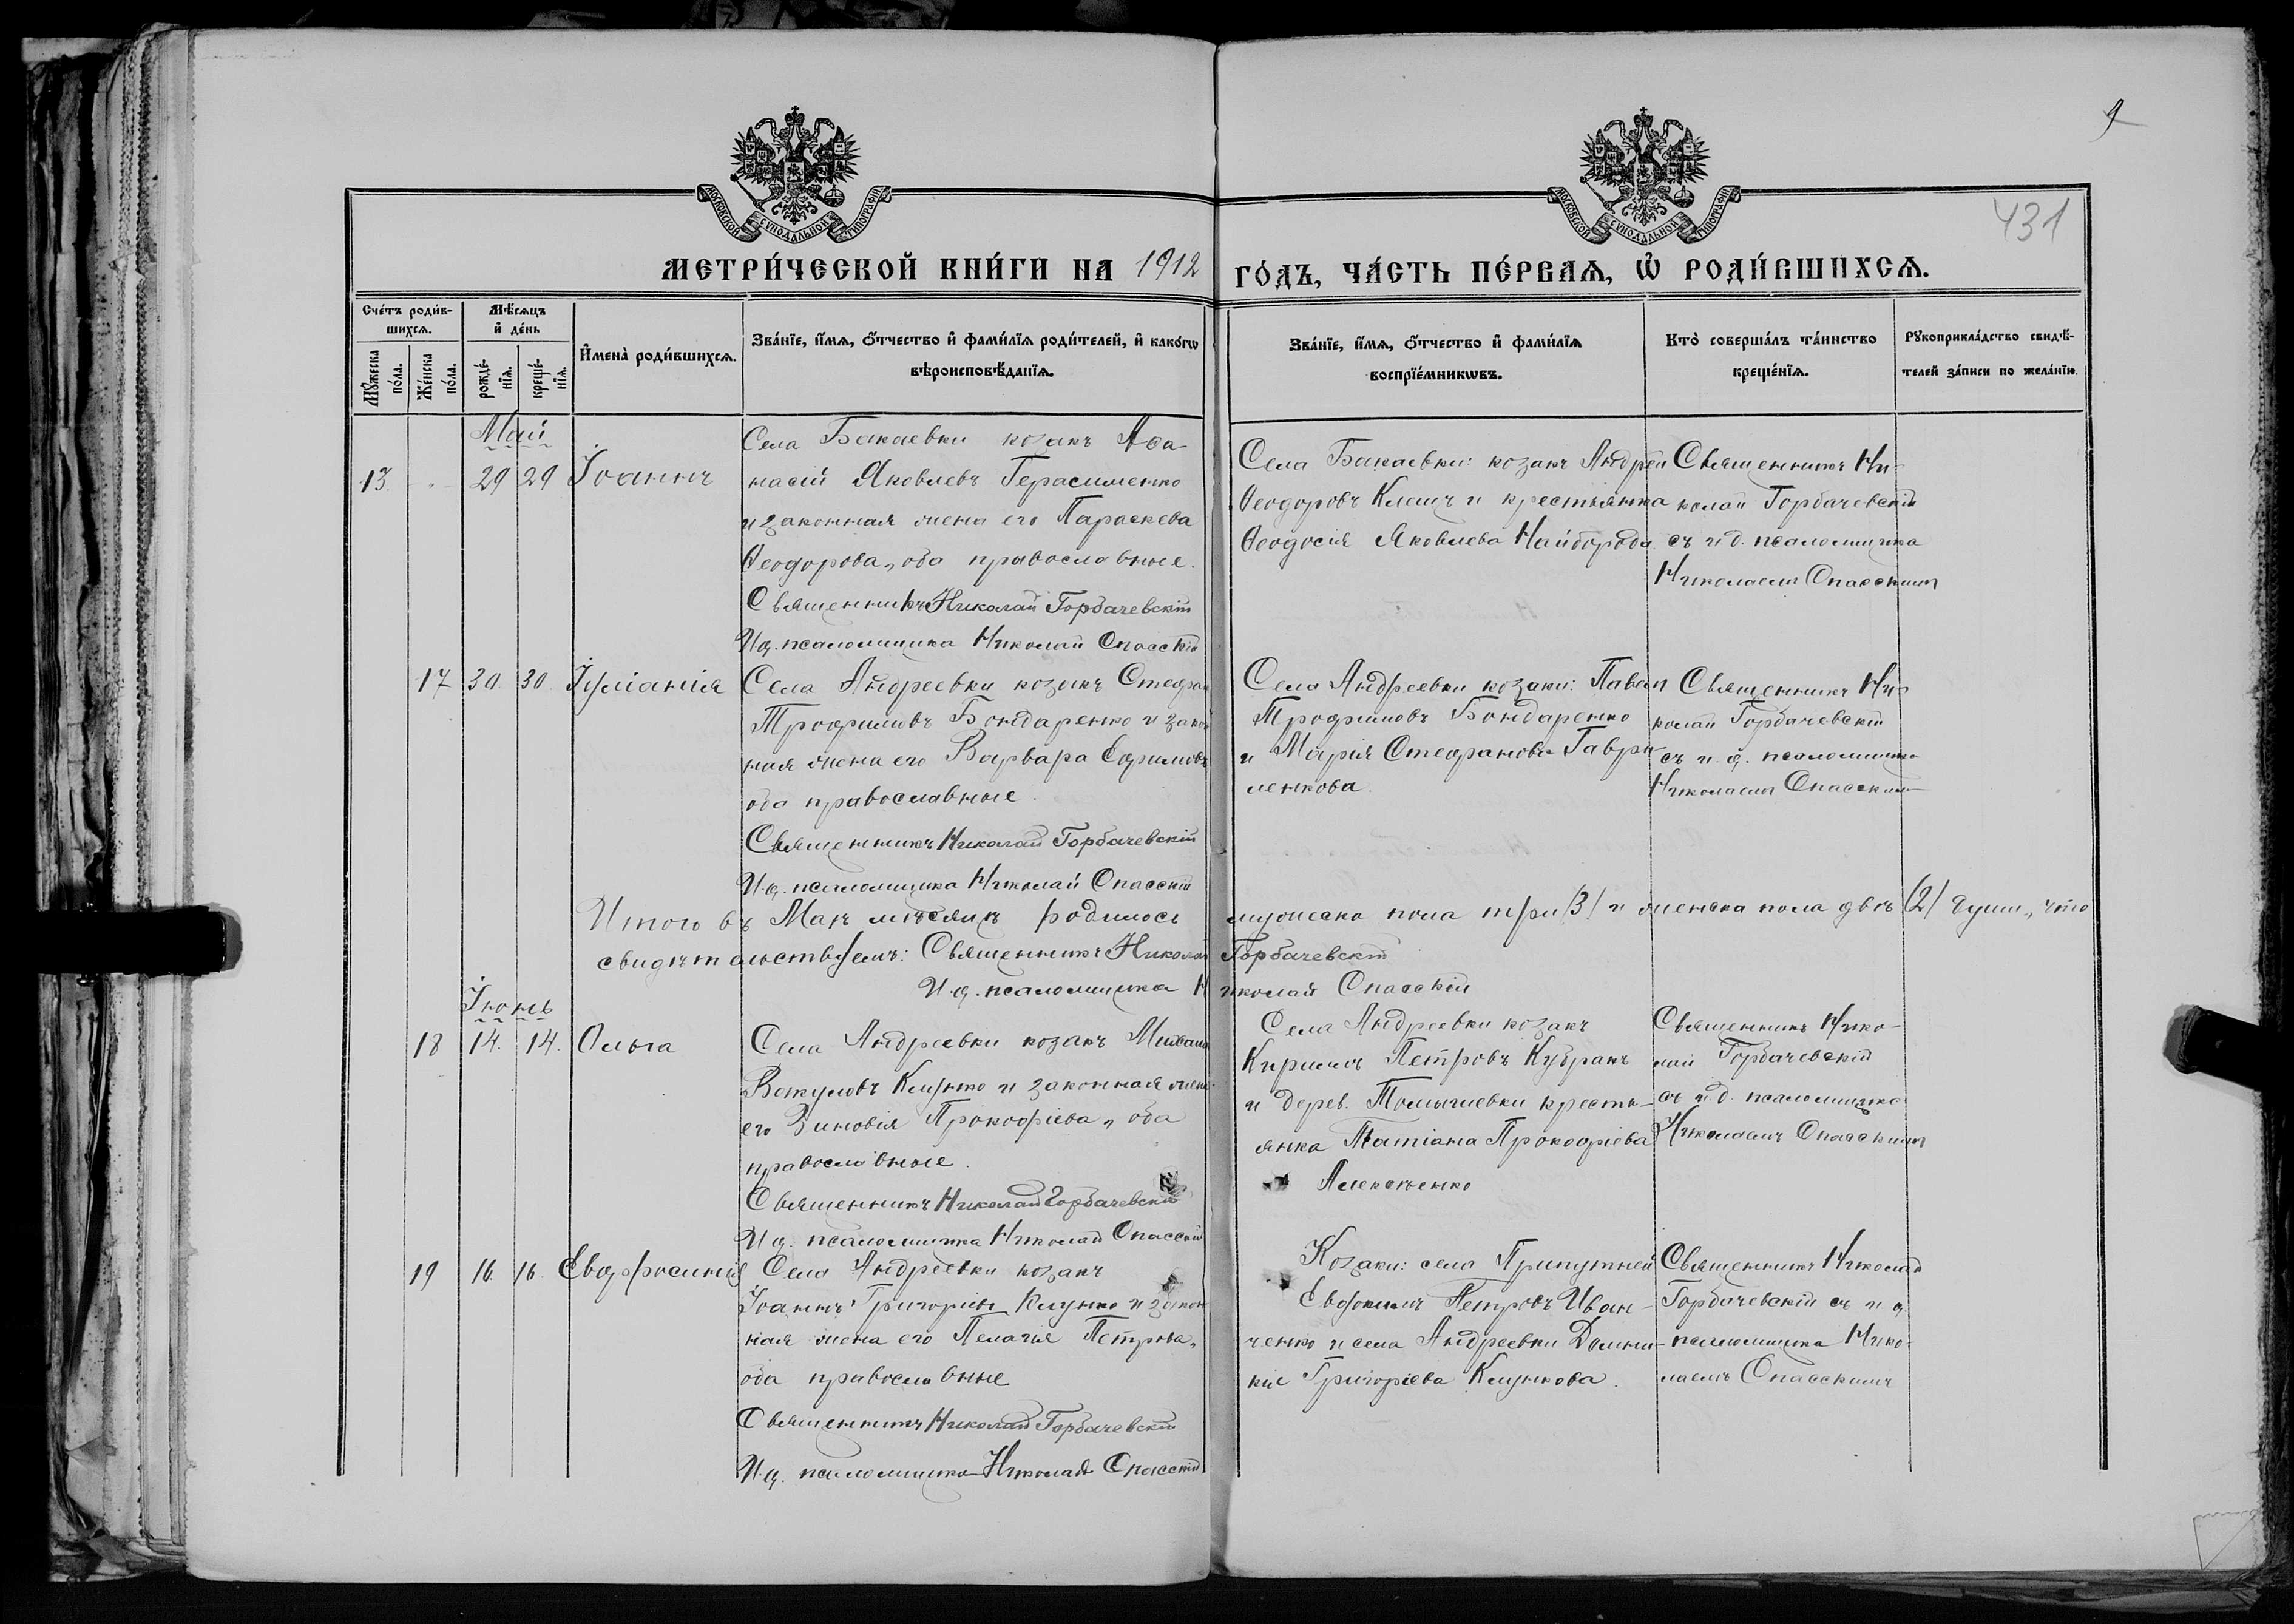 431
МОСКОВСКОЙ СУНОДАЛЬНОЙ ТИПОГРАФІИ
МОСКОВСКОЙ СУНОДАЛЬНОЙ ТИПОГРАФІИ
МЕТРИ́ЧЕСКОЙ КНИ́ГИ НА 1912 ГО́ДЪ, ЧА́СТЬ ПЕ́РВАѦ, Ѡ҆ РОДИ́ВШИХСѦ.
Сче́тъ роди́в-
шихсѧ.
Мꙋ́жеска
по́ла.
Же́нска
по́ла.
Мѣ́сѧцъ
и҆ де́нь
рожде́-
нїѧ.
креще́-
нїѧ.
И҆мена̀ роди́вшихсѧ.
Зва́нїе, и҆́мѧ, ѻ҆́тчество и҆ фами́лїѧ роди́телей, и҆ како́гѡ
вѣроисповѣ́данїѧ.
Зва́нїе, и҆́мѧ, ѻ҆́тчество и҆ фами́лїѧ
воспрїе́мникѡвъ.
Кто̀ соверша́лъ та́инство
креще́нїѧ.
Рꙋкоприкла́дство свидѣ́-
телей за́писи по жела́нїю.
Май
13. 29 29 Іоаннъ
Села Бакаевки козакъ Аѳа-
насій Яковлевъ Герасименко
и законная жена его Параскева
Ѳеодорова, оба православные.
Священникъ Николай Горбачевскій
И.д. псаломщика Николай Спасскій
Села Бакаевки: козакъ Андрей
Ѳеодоровъ Клещ и крестьянка
Ѳеодосія Яковлева Найборода
Священникъ Ни-
колай Горбачевскій
съ и.д. псаломщика
Николаемъ Спасскимъ
17 30. 30. Іуліанія
Села Андреевки козакъ Стефан
Трофимовъ Бондаренко и закон
ная жена его Варвара Ефимова
оба православные.
Священникъ Николай Горбачевскій
И.д. псаломщика Николай Спасскій
Села Андреевки козаки: Павел
Трофимовъ Бондаренко
и Марія Стефанова Гаври-
ленкова.
Священникъ Ни-
колай Горбачевскій
съ и.д. псаломщика
Николаемъ Спасскимъ
Итого въ Маѣ мѣсяцѣ родилось мужеска пола три (3) и женска пола двѣ (2) души, что
свидѣтельствуемъ: Священникъ Николай Горбачевскій
И.д. псаломщика Николай Спасскій
Іюнь
18 14. 14. Ольга
Села Андреевки козакъ Михаил
Вакуловъ Клунко и законная жена
его Зиновія Прокофіева, оба
православные.
Священникъ Николай Горбачевскій
И.д. псаломщика Николай Спасскій
Села Андреевки козакъ
Кириллъ Петровъ Кубракъ
и дерев. Томышевки кресть-
янка Татіана Прокофіева
Алексѣенко
Священникъ Нико-
лай Горбачевскій
съ и.д. псаломщика
Николаемъ Спасскимъ
19 16. 16. Евфросинія
Села Андреевки козакъ
Іоаннъ Григорьев Клунко и закон
ная жена его Пелагія Петрова,
оба православные
Священникъ Николай Горбачевскій
И.д. псаломщика Николай Спасскій
Козаки: села Припутней
Евфимій Петровъ Иван-
ченко и села Андреевки Домни-
кія Григоріева Клункова.
Священникъ Николай
Горбачевскій съ и.д.
псаломщика Нико-
лаемъ Спасскимъ